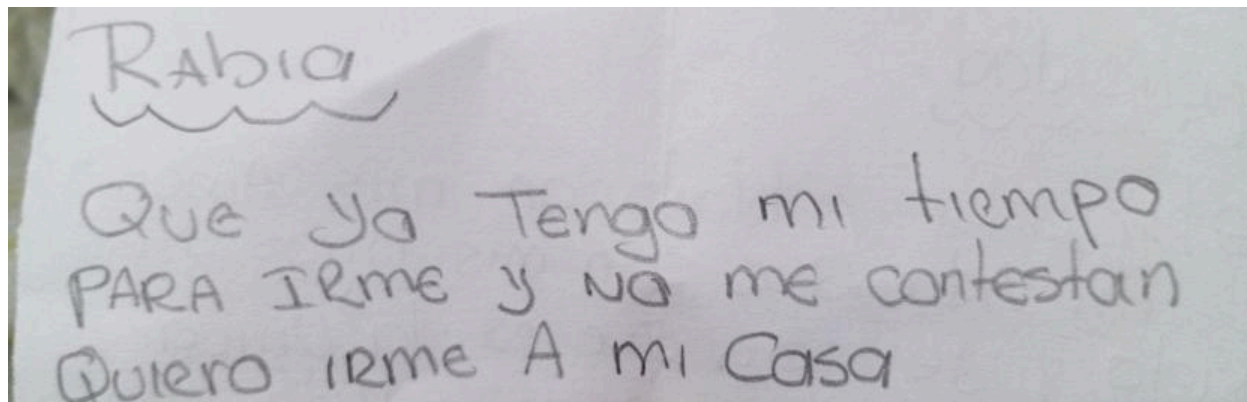 RAbia
Que ya Tengo mi tiempo
PARA IRme y NO me contestan
Quiero IRme A mi Casa